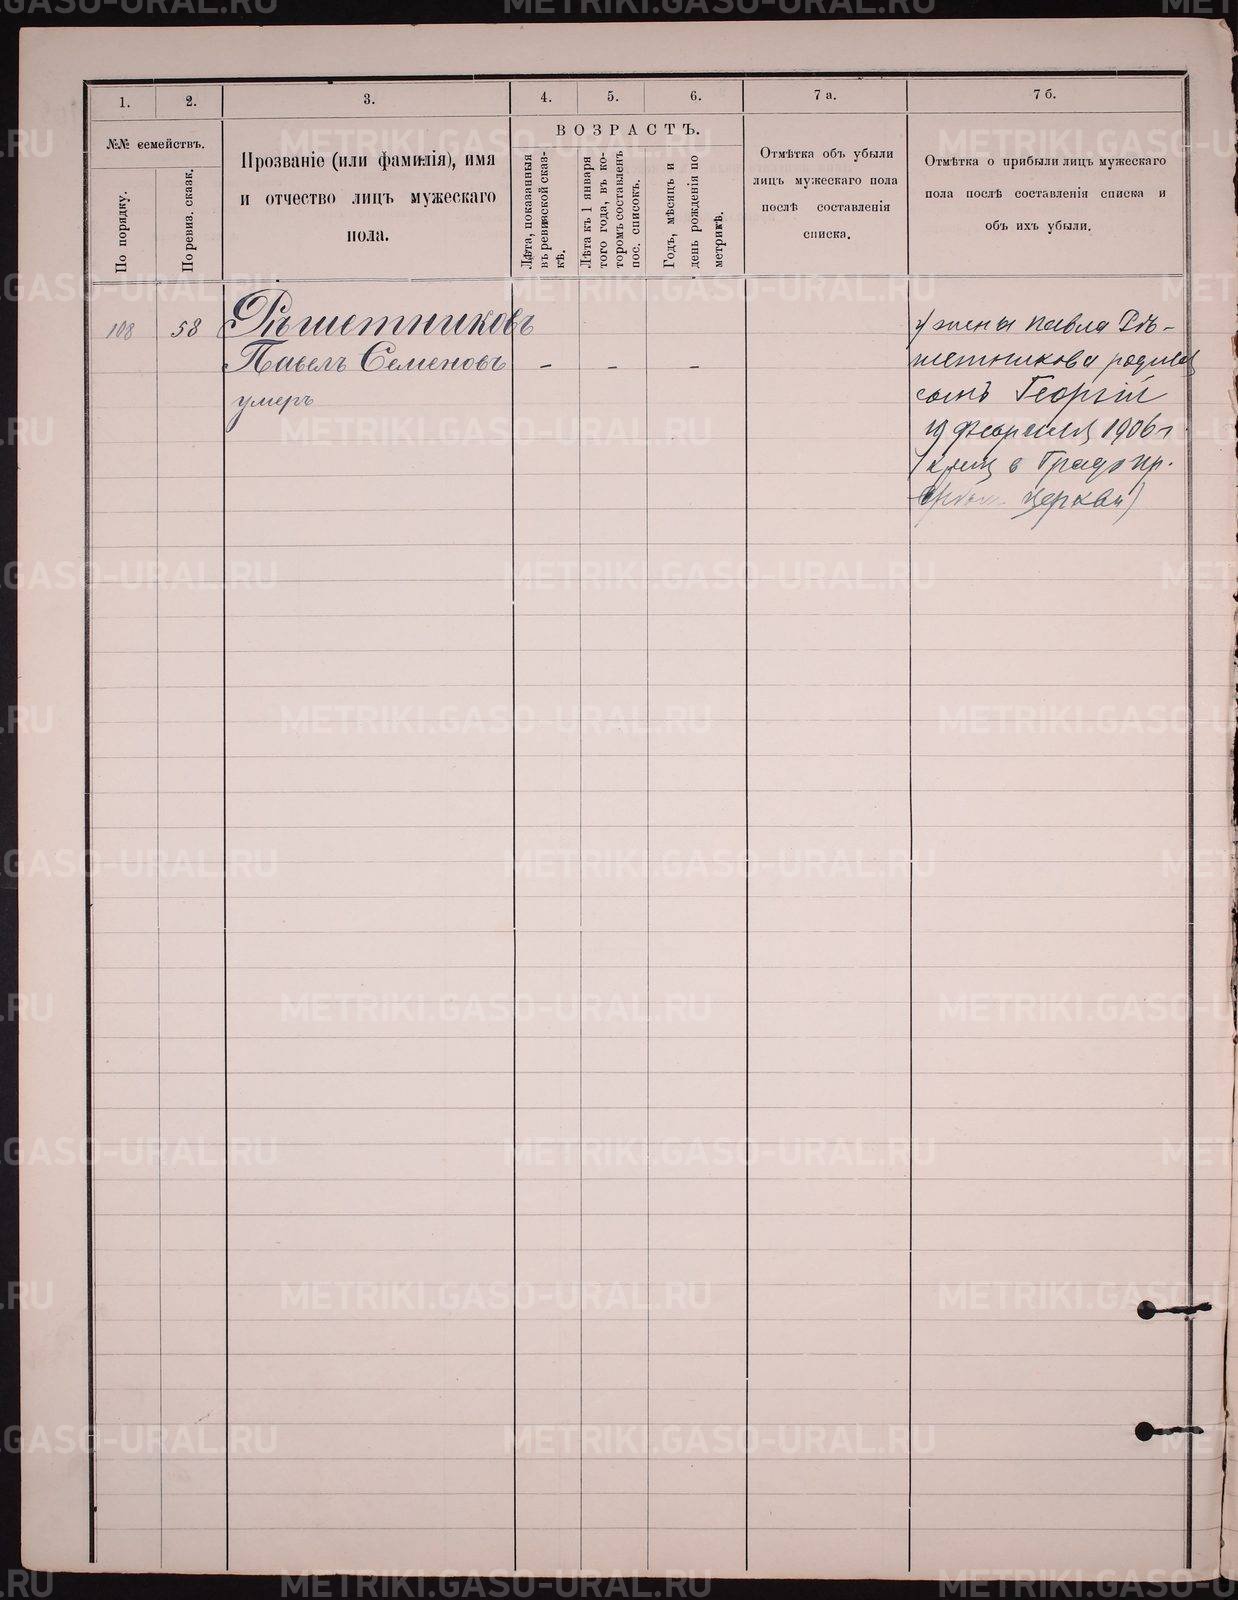 1.
2.
3.
4.
5.
6.
7 а.
7 б.
№№ семействъ.
По порядку.
По ревиз. сказк.
Прозваніе (или фамилія), имя
и отчество лицъ мужескаго
пола.
ВОЗРАСТЪ.
Лѣта, показанныя
въ ревизской сказ-
кѣ.
Лѣта къ 1 января
того года, въ ко-
торомъ составленъ
пос. списокъ.
Годъ, мѣсяцъ и
день рожденія по
метрикѣ.
Отмѣтка объ убыли
лицъ мужескаго пола
послѣ составленія
списка.
Отмѣтка о прибыли лицъ мужескаго
пола послѣ составленія списка и
объ ихъ убыли.
108
58
Рѣшетниковъ
Павелъ Семеновъ
умеръ
-
-
-
У жены Павла Рѣ-
шетникова родился
сынъ Георгій
Февраля 1906 г.
в Градо
церкви)
METRIKI.GASO-URAL.RU